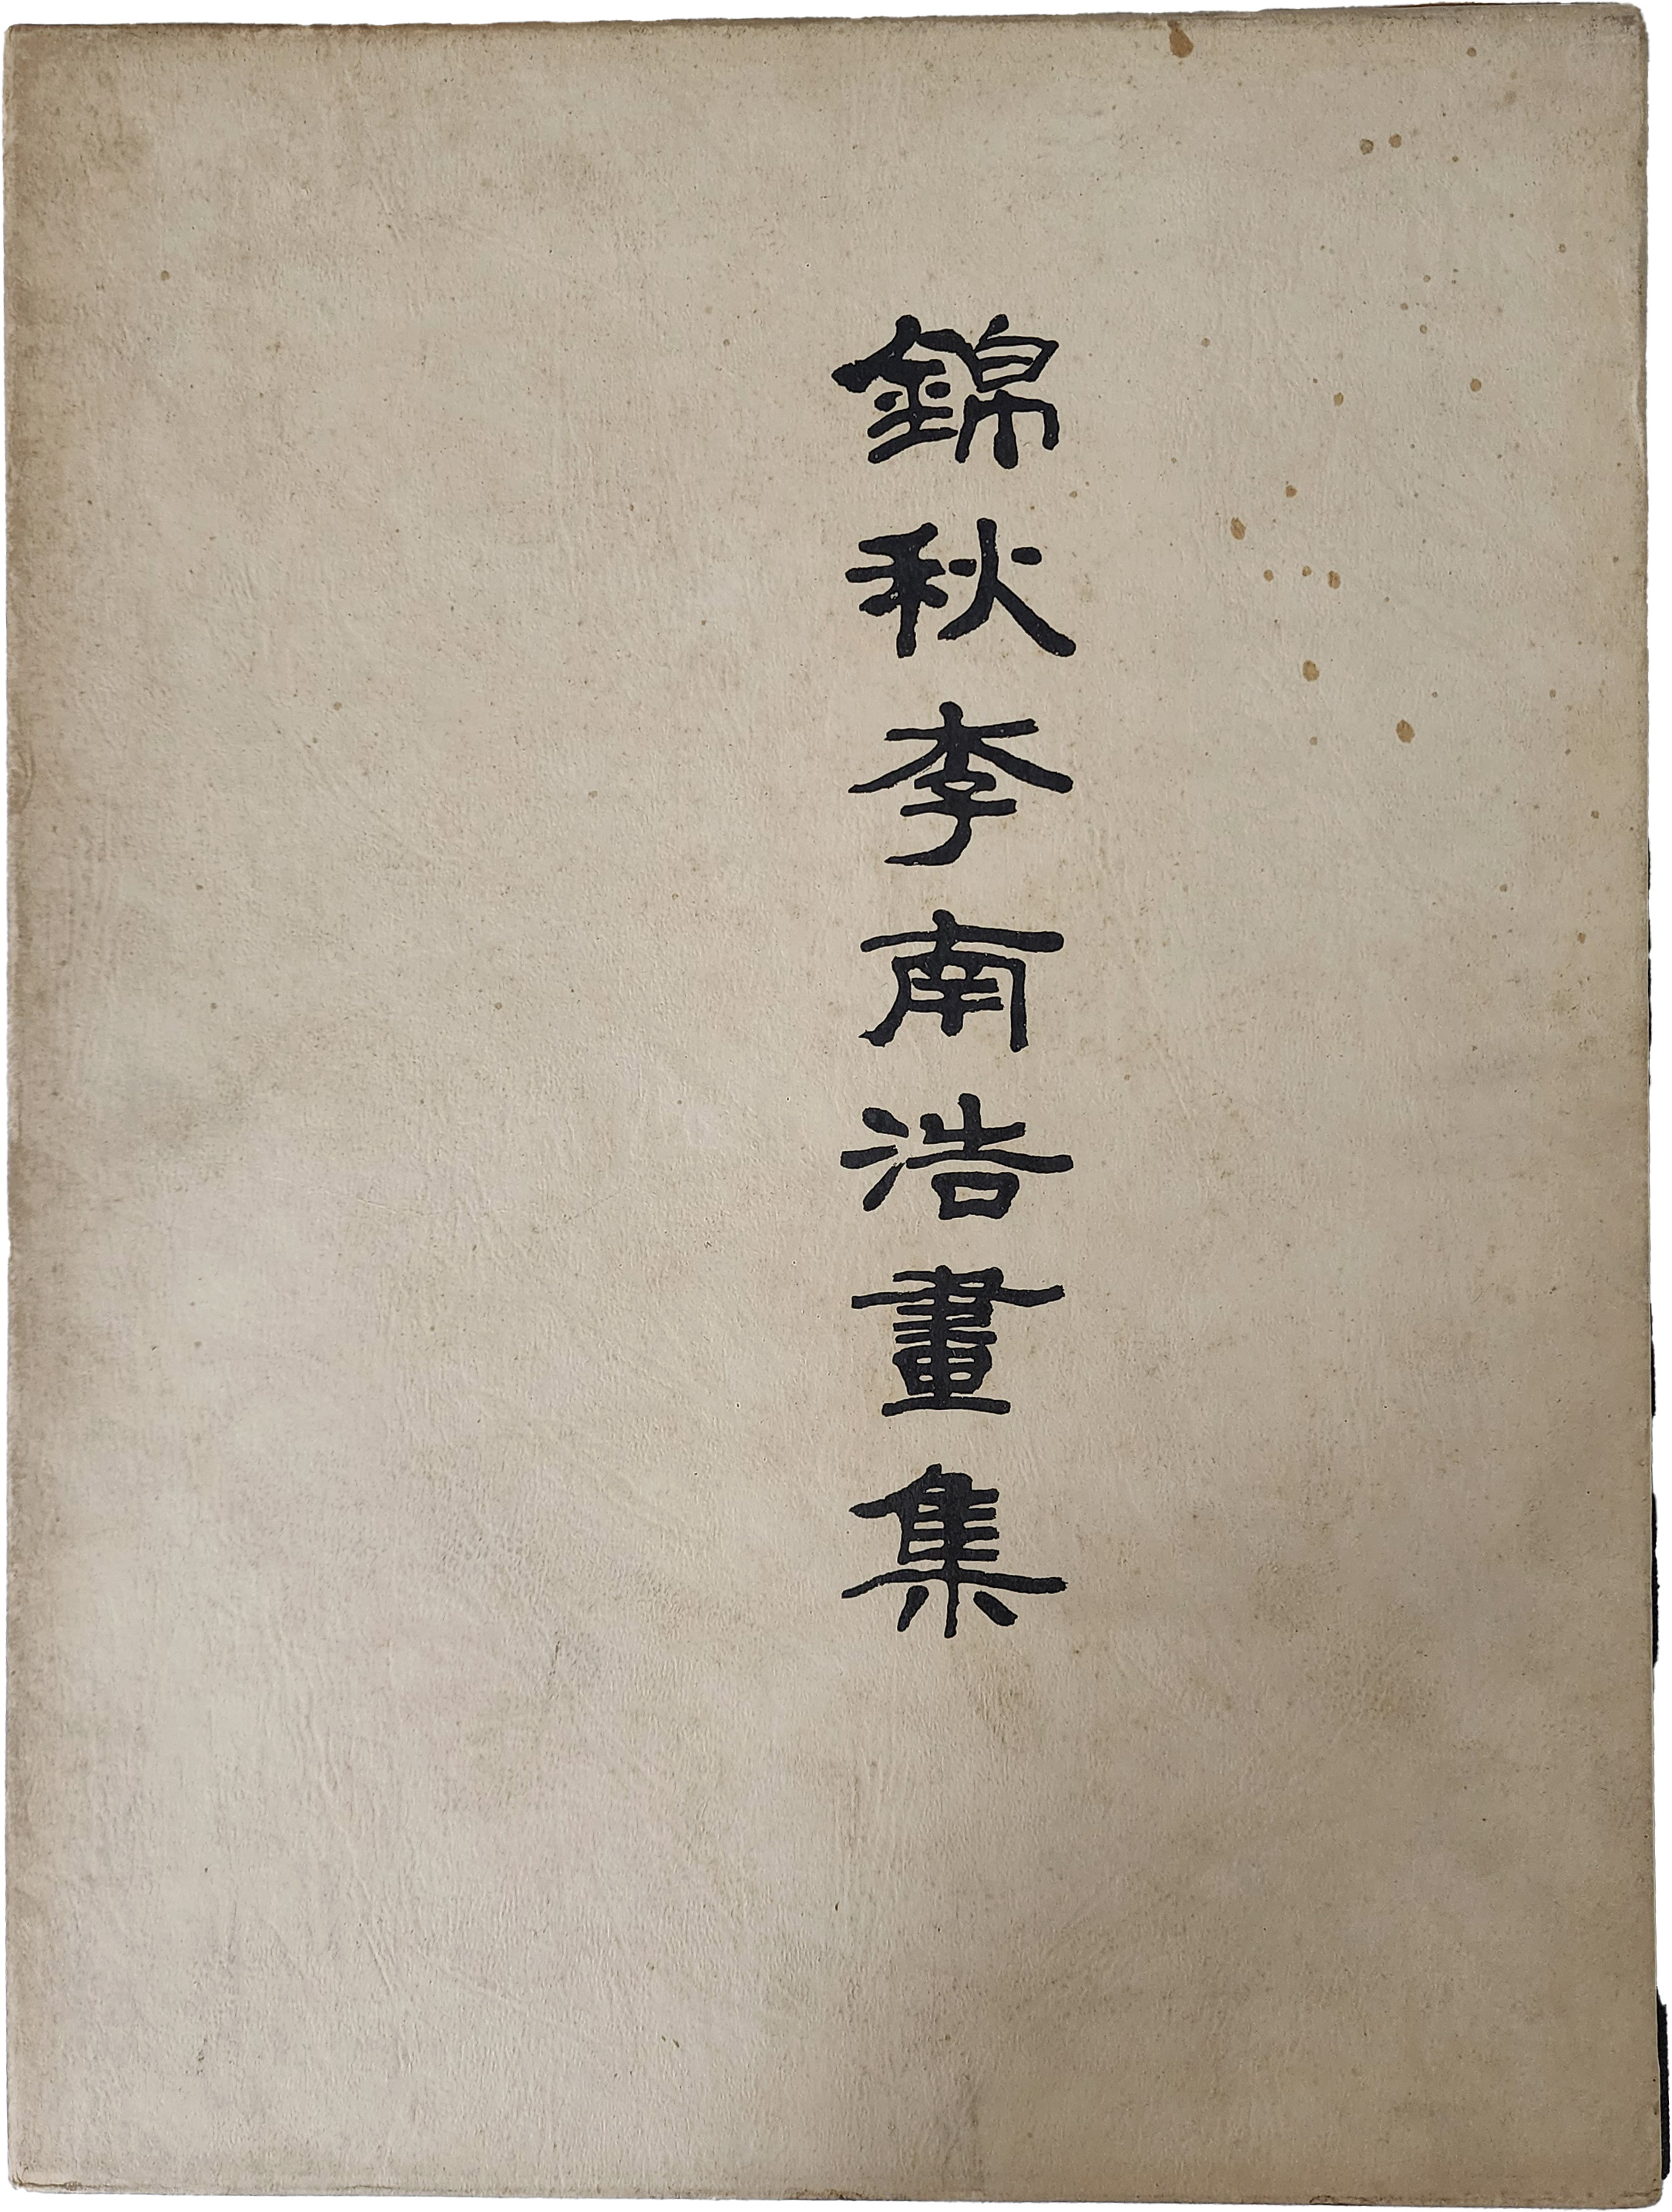 錦秋李南浩畫集